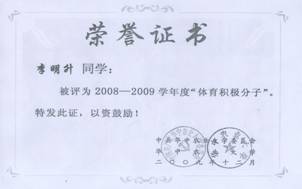 荣誉证书
李明升 同学：
被评为 2008—2009 学年度“体育积极分子”。
特发此证，以资鼓励！
二〇〇九年十二月